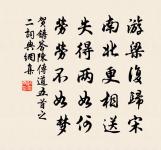 游梁復歸宋
南北更相送
失得兩如何
勞勞不如夢
賀鑄答陳傳道五首之
二詞典網集